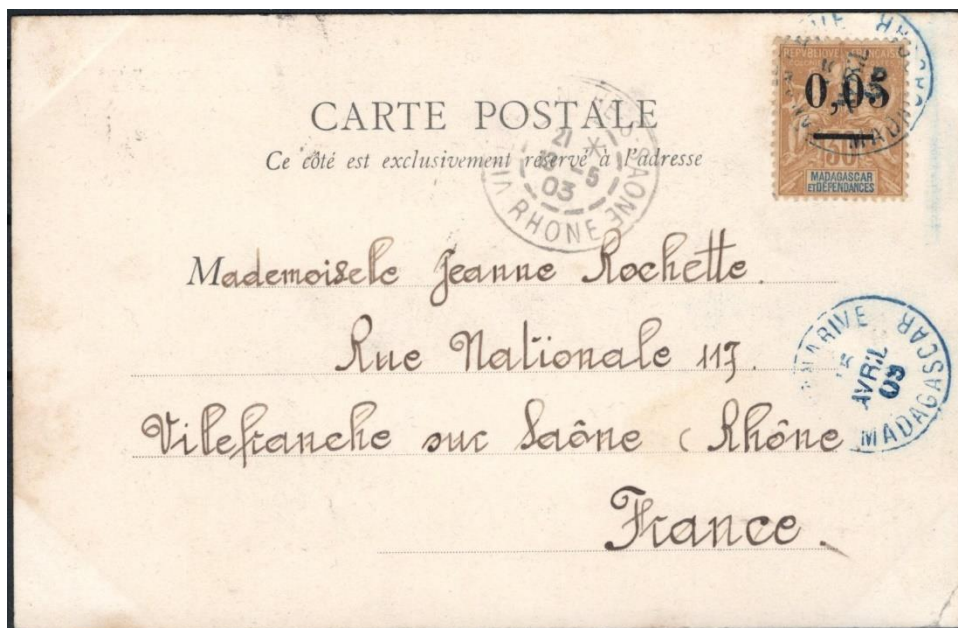 CARTE POSTALE
Ce côté est exclusivement réservé à l'adresse
RÉPUBLIQUE FRANÇAISE
0,05
MADAGASCAR
ET DÉPENDANCES
21
5
03
RHONE
Mademoisele Jeanne Rochette.
Rue Nationale 117.
Vilefranche sur Saône ( Rhône
France.
AVRIL
03
MADAGASCAR